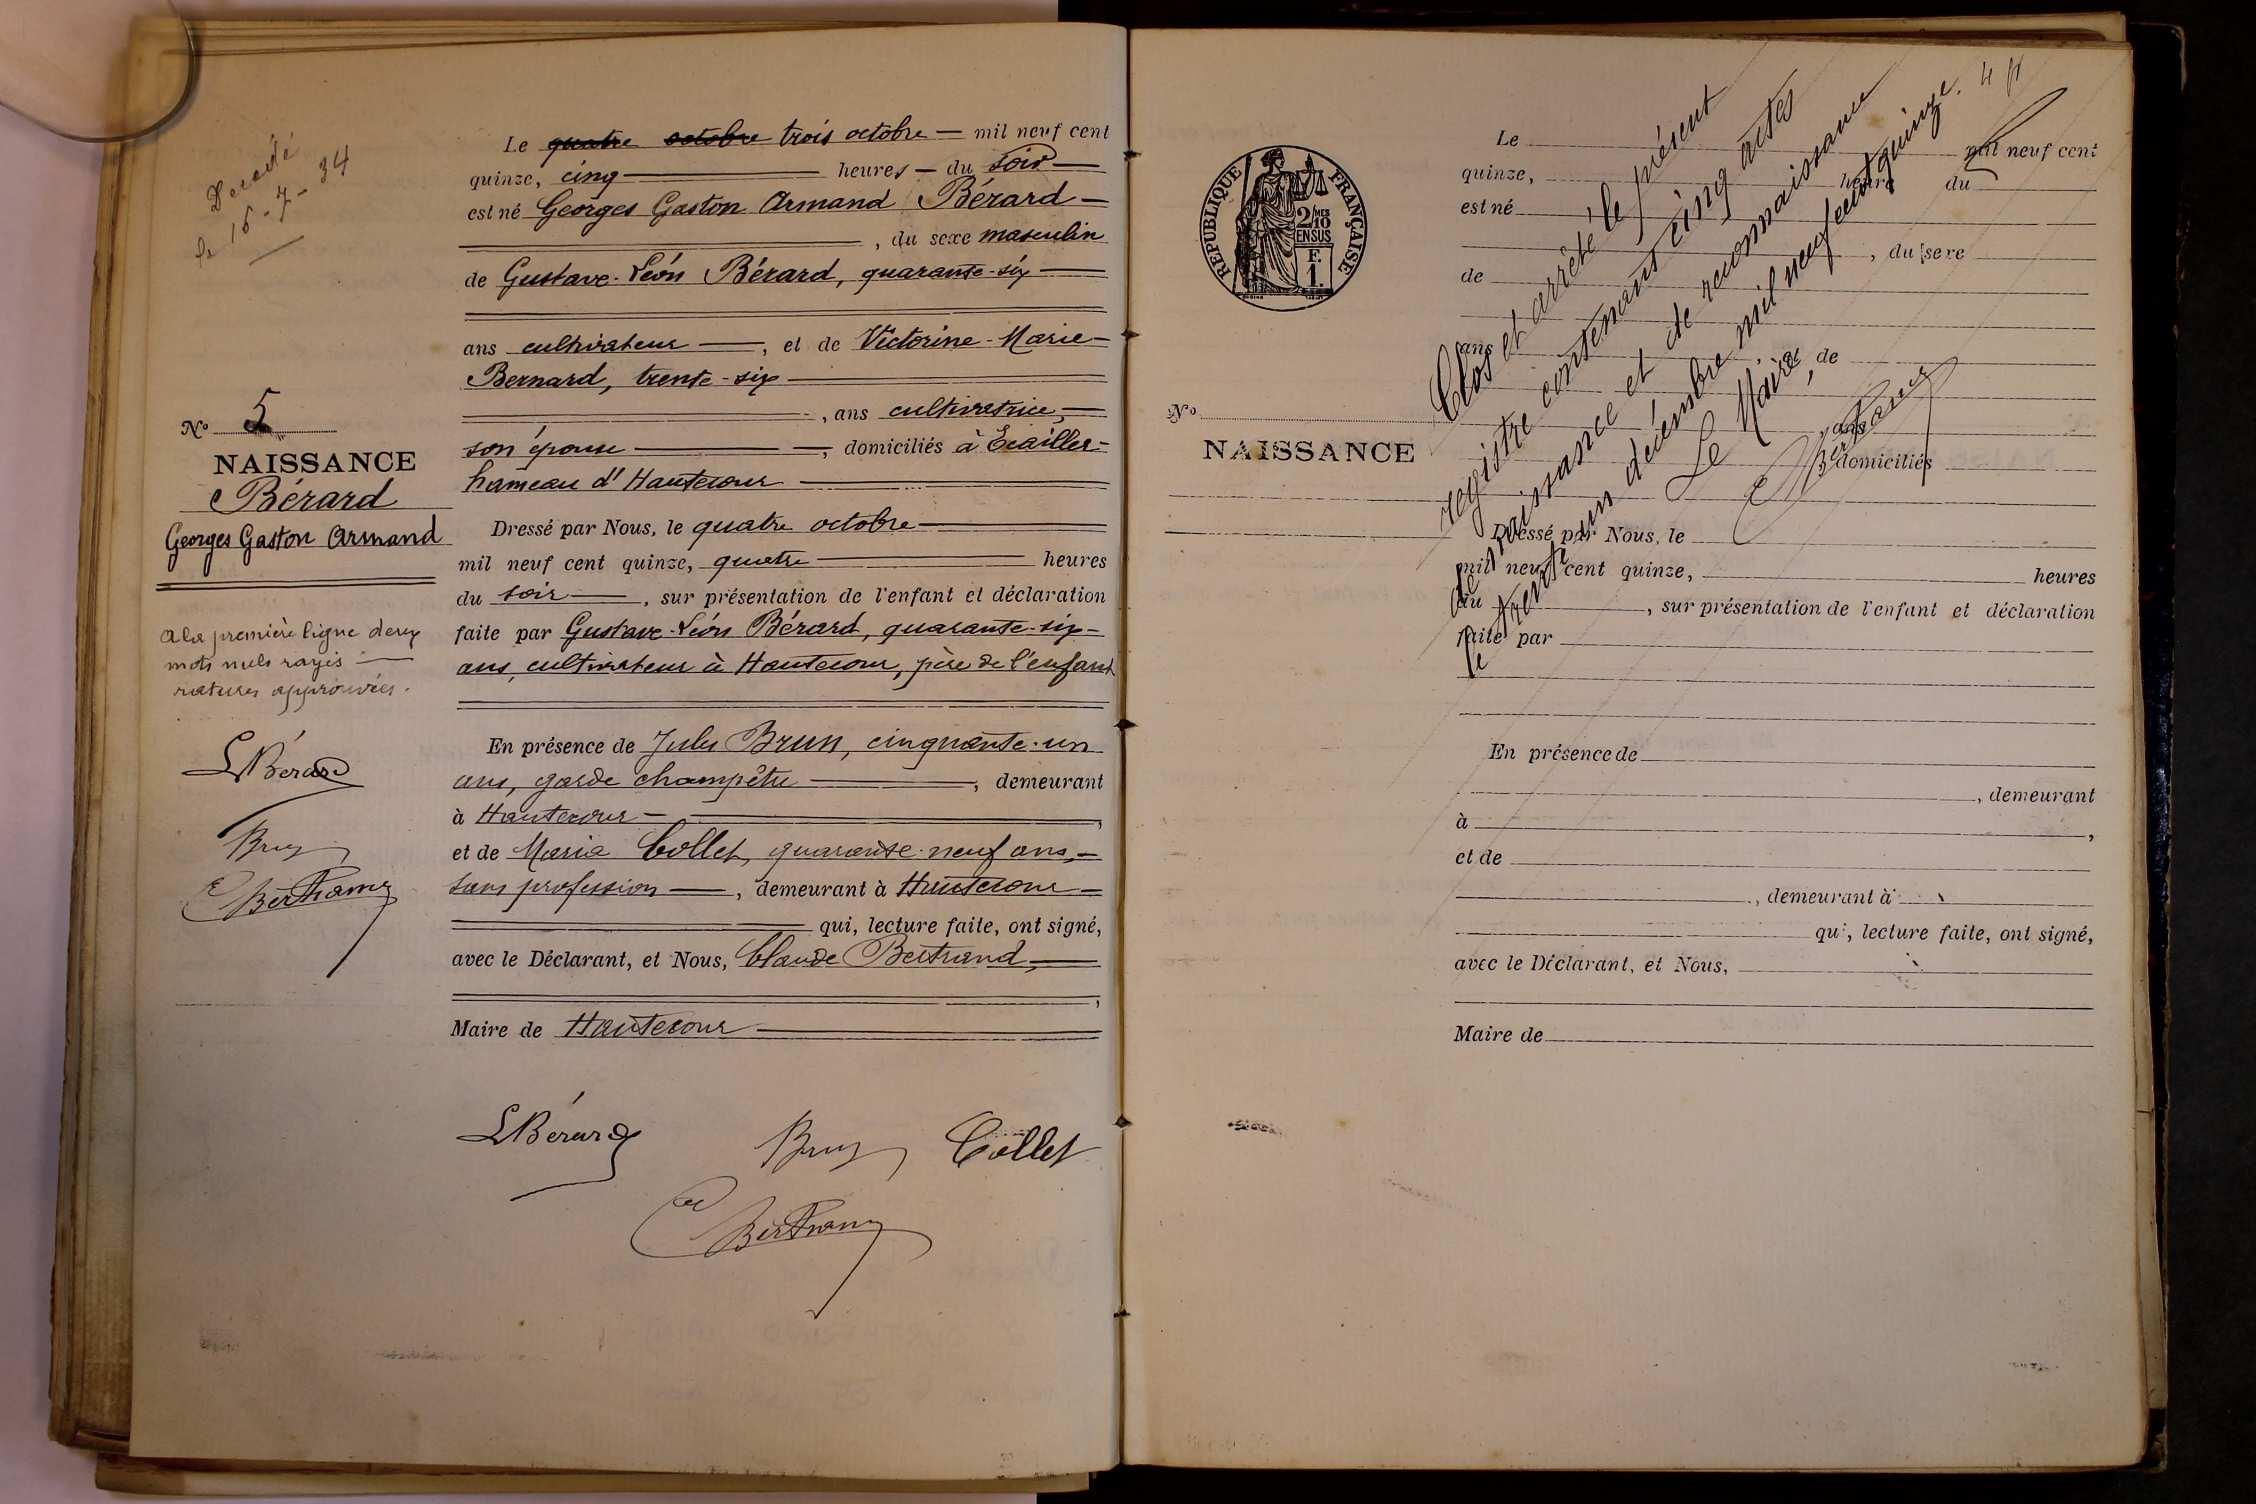 Décédé
le 16-7-34
Le quatre octobre trois octobre — mil neuf cent
quinze, cinq — heures — du soir —
est né Georges Gaston Armand Bérard —
, du sexe masculin
de Gustave-Léon Bérard, quarante-six —
ans cultivateur —, et de Victorine-Marie-
Bernard, trente-six —
, ans cultivatrice, —
son épouse —, domiciliés à Ecailler-
hameau d'Hautecour —
Dressé par Nous, le quatre octobre —
mil neuf cent quinze, quatre — heures
du soir —, sur présentation de l'enfant et déclaration
faite par Gustave-Léon Bérard, quarante-six-
ans, cultivateur à Hautecour, père de l'enfant
En présence de Jules Brun, cinquante-un
ans, garde champêtre —, demeurant
à Hautecour —,
et de Maria Collet, quarante-neuf ans, —
sans profession —, demeurant à Hautecour —
qui, lecture faite, ont signé,
avec le Déclarant, et Nous, Claude Bertrand, —
,
Maire de Hautecour —
LBérard
Brun
Collet
CBertrand
No 5
NAISSANCE
Bérard
Georges Gaston Armand
A la première ligne deux
mots nuls rayés —
ratures approuvées.
LBérard
Brun
CBertrand
RÉPUBLIQUE FRANÇAISE
2/10 MES
EN SUS
F.
1.
No
NAISSANCE
Le mil neuf cent
quinze, heure du
est né
, du sexe
de
ans , et de
ans
domiciliés
Dressé par Nous, le
mil neuf cent quinze, heures
du , sur présentation de l'enfant et déclaration
faite par
En présence de
, demeurant
à ,
et de
, demeurant à
qui, lecture faite, ont signé,
avec le Déclarant, et Nous,
Maire de
Clos et arrêté le présent
registre contenant cinq actes
de naissance et de reconnaissance
le trente un décembre mil neuf cent quinze.
Le Maire,
CBertrand